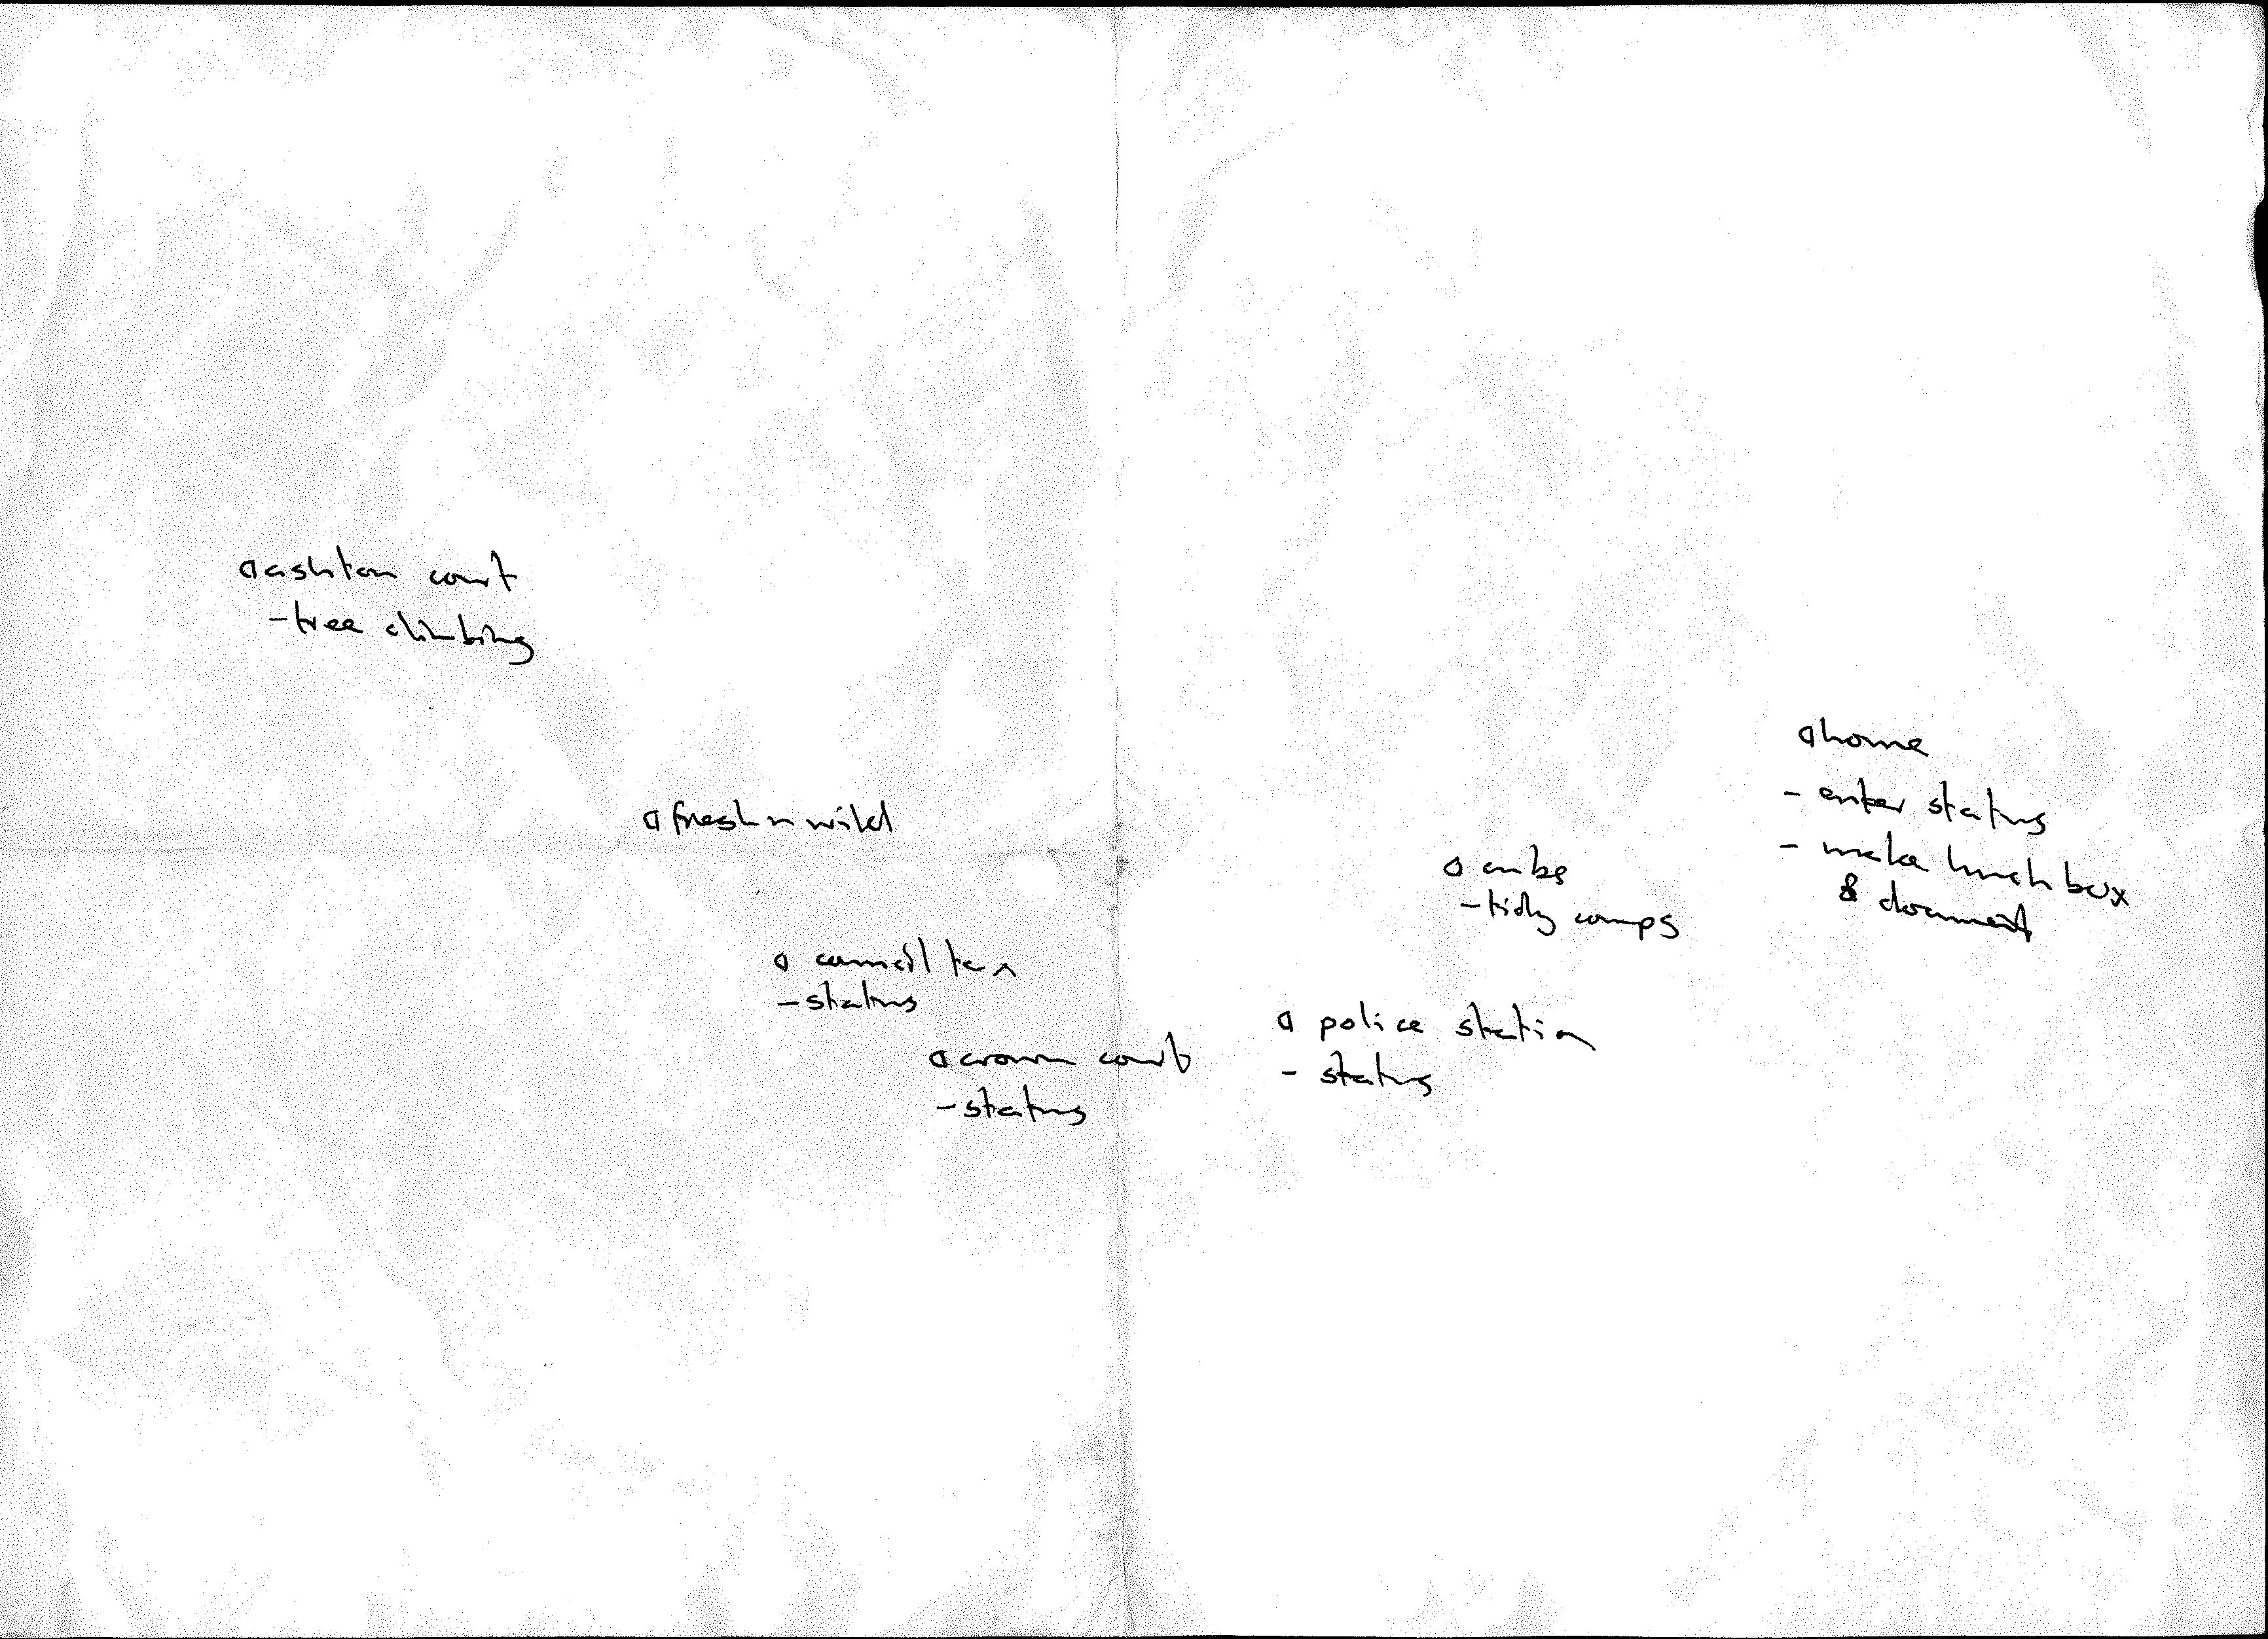 ashton court
- tree climbing
fresh n wild
council tax
- status
crown court
- status
police station
- status
cube
- tidy comps
home
- enter status
- make lunch box
& document